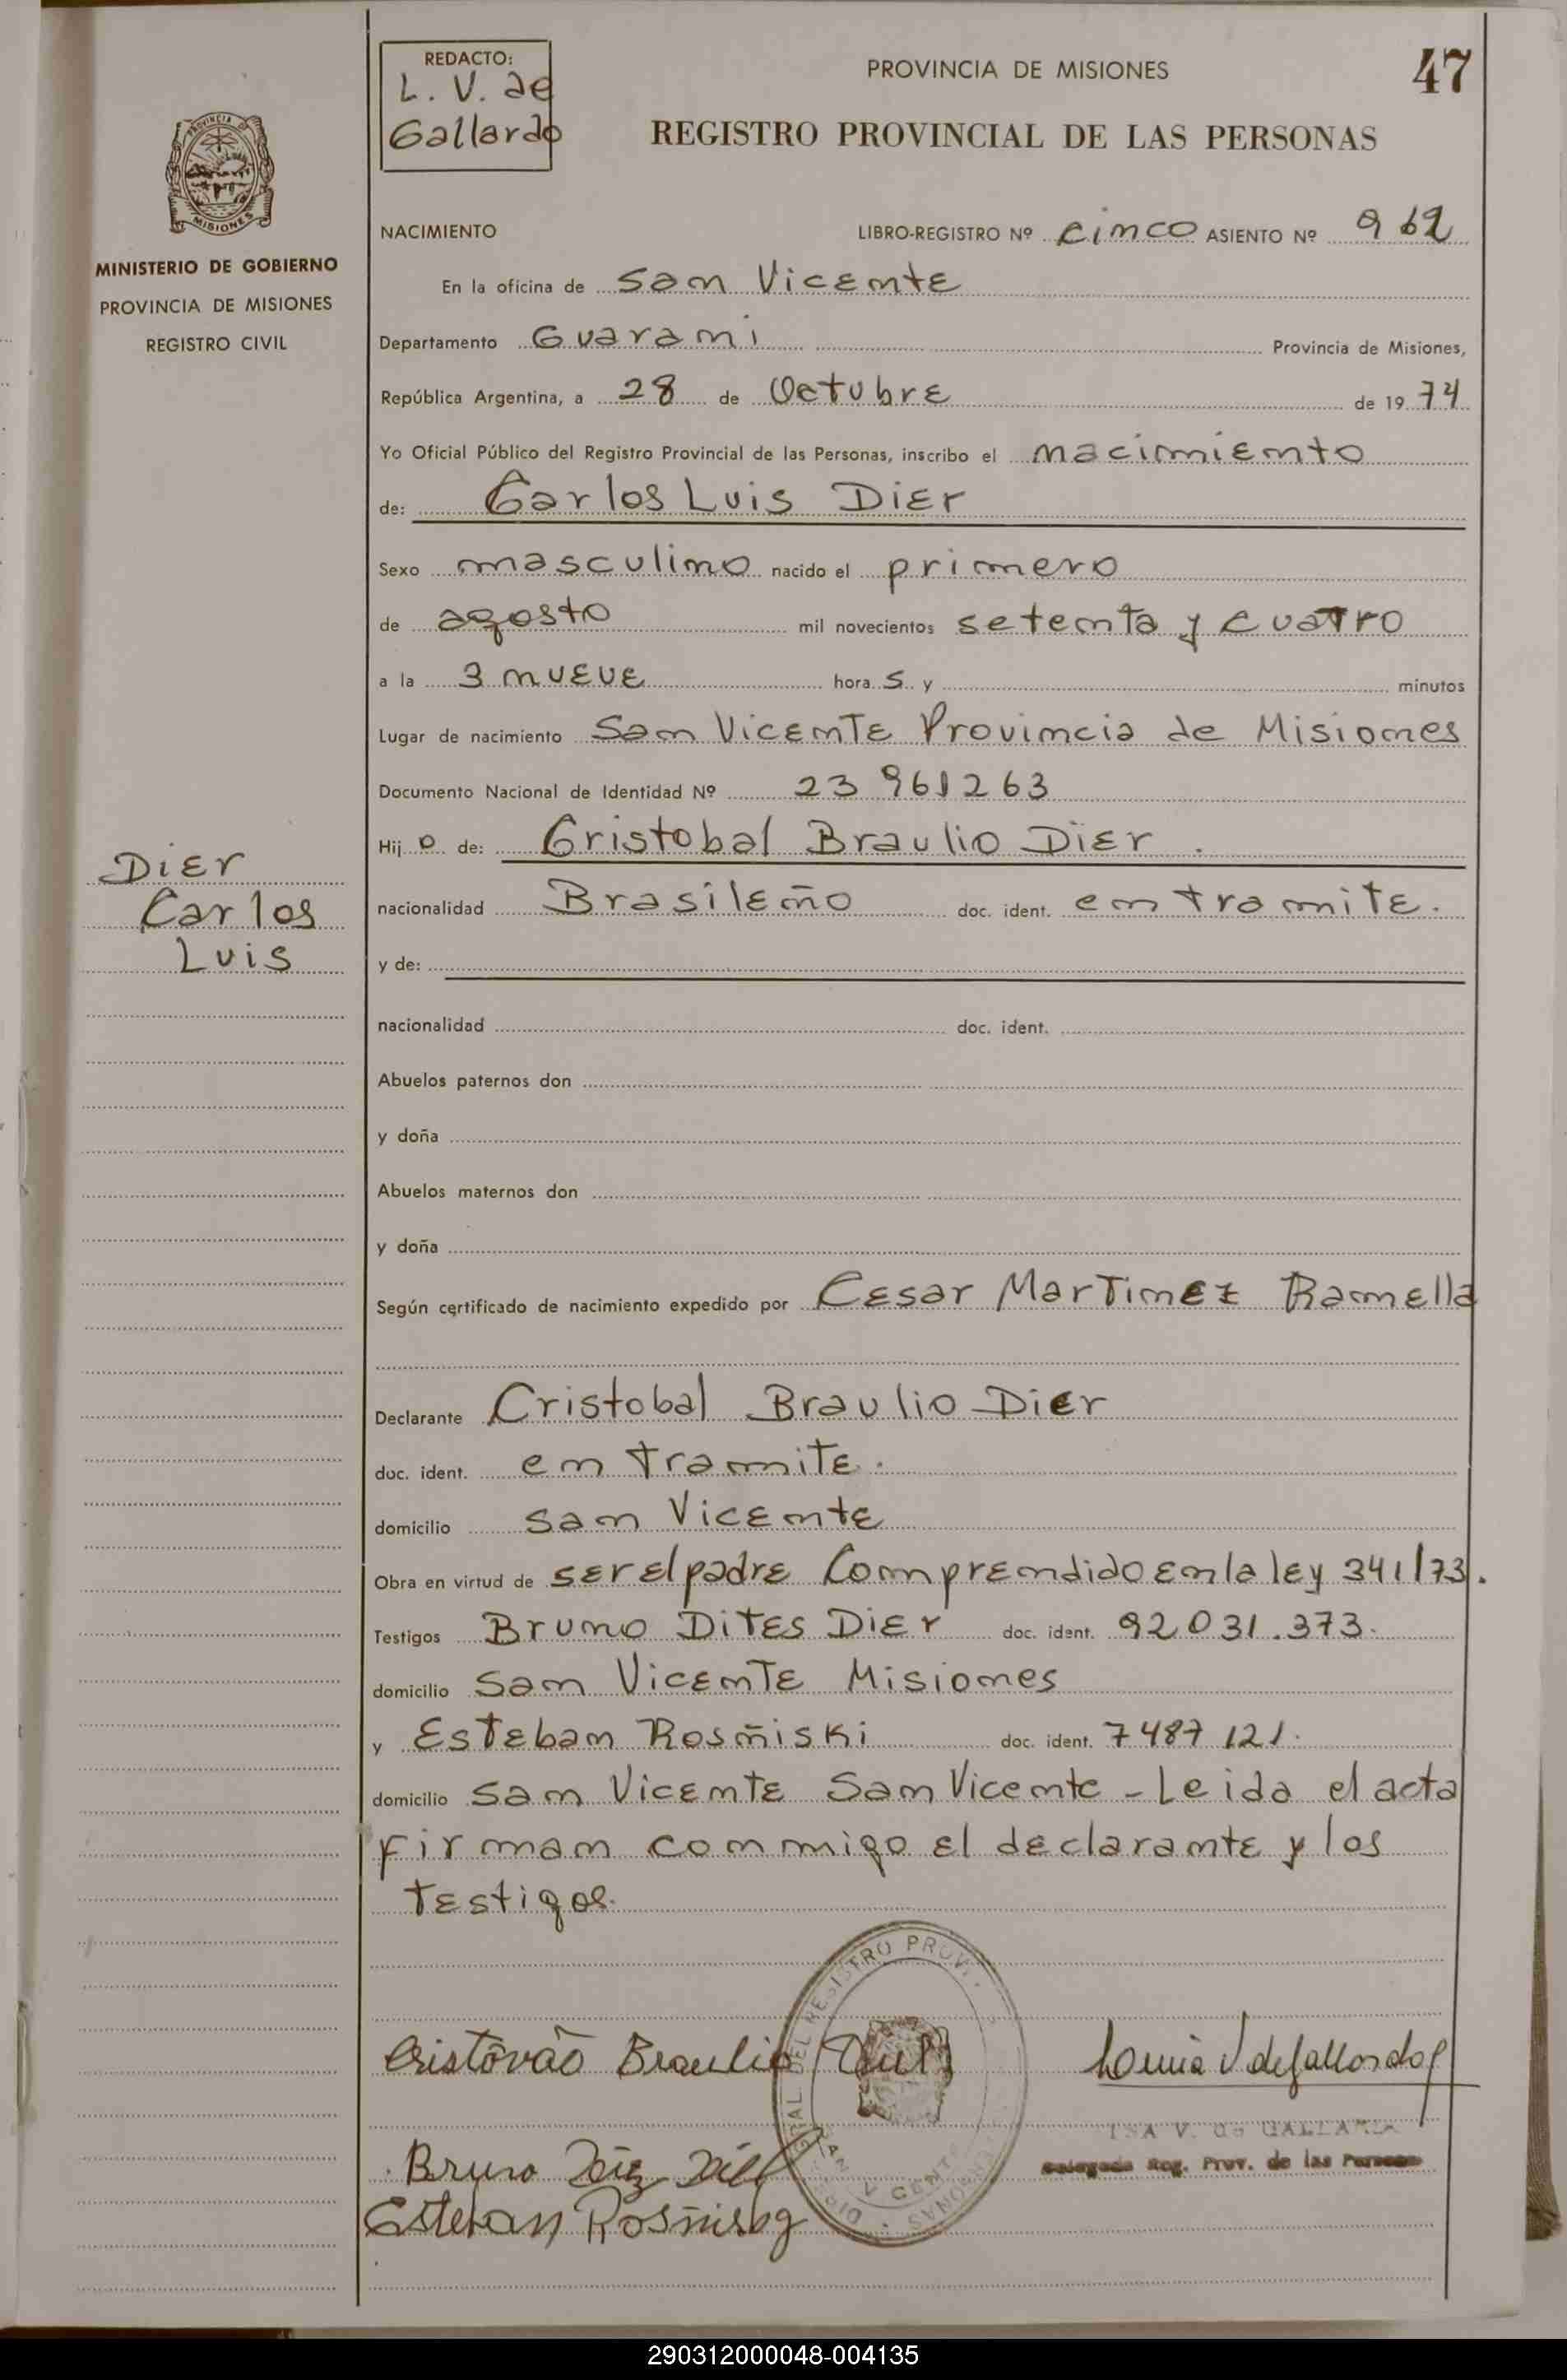 REDACTO:
L. V. de
Gallardo
PROVINCIA DE MISIONES
47
REGISTRO PROVINCIAL DE LAS PERSONAS
PROVINCIA DE
MISIONES
MINISTERIO DE GOBIERNO
PROVINCIA DE MISIONES
REGISTRO CIVIL
NACIMIENTO LIBRO-REGISTRO Nº cinco ASIENTO Nº 962
En la oficina de San Vicente
Departamento Guarani Provincia de Misiones,
República Argentina, a 28 de Octubre de 1974
Yo Oficial Público del Registro Provincial de las Personas, inscribo el nacimiento
de: Carlos Luis Dier
Sexo masculino nacido el primero
de agosto mil novecientos setenta y cuatro
a la s nueve hora s y minutos
Lugar de nacimiento San Vicente Provincia de Misiones
Documento Nacional de Identidad Nº 23 961263
Hij o de: Cristobal Braulio Dier.
nacionalidad Brasileño doc. ident. en tramite.
y de:
nacionalidad doc. ident.
Abuelos paternos don
y doña
Abuelos maternos don
y doña
Según certificado de nacimiento expedido por Cesar Martinez Ramella
Declarante Cristobal Braulio Dier
doc. ident. en tramite.
domicilio San Vicente
Obra en virtud de ser el padre Comprendido en la ley 341/73.
Testigos Bruno Dites Dier doc. ident. 92.031.373.
domicilio San Vicente Misiones
y Esteban Rosñiski doc. ident. 7487 121.
domicilio San Vicente San Vicente - Leida el acta
firman conmigo el declarante y los
testigos.
Dier
Carlos
Luis
Cristôvão Braulio
Bruno
Estevan
V. de GALLARDO
Delegada Reg. Prov. de las Personas
DEL REGISTRO PROV.
SAN VICENTE
290312000048-004135